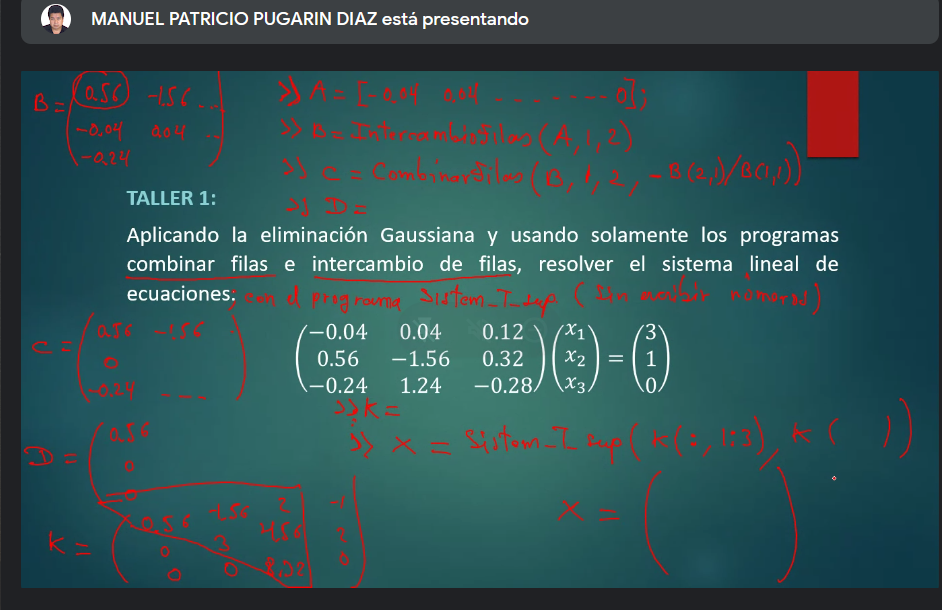 MANUEL PATRICIO PUGARIN DIAZ está presentando
B = (0.56 -1.56 ...
-0.04 0.04 ...
-0.24 )
>> A = [-0.04 0.04 ------- 0];
>> B = IntercambioFilas (A, 1, 2)
>> C = Combinarfilas (B, 1, 2, -B(2,1)/B(1,1))
>> D =
TALLER 1:
Aplicando la eliminación Gaussiana y usando solamente los programas
combinar filas e intercambio de filas, resolver el sistema lineal de
ecuaciones: con el programa Sistem_T_sup (Sin escribir números)
C = (0.56 -1.56
0
-0.24 --- )
(−0.04 0.04 0.12) (x₁) (3)
(0.56 −1.56 0.32) (x₂) = (1)
(−0.24 1.24 −0.28) (x₃) (0)
>> K =
>> X = Sistem_T_sup (K(:,1:3), K( ))
D = (0.56
0
0
K = (0.56 -1.56 2 -1
0 3 4.56 2
0 0 8.02 0)
X = ( )